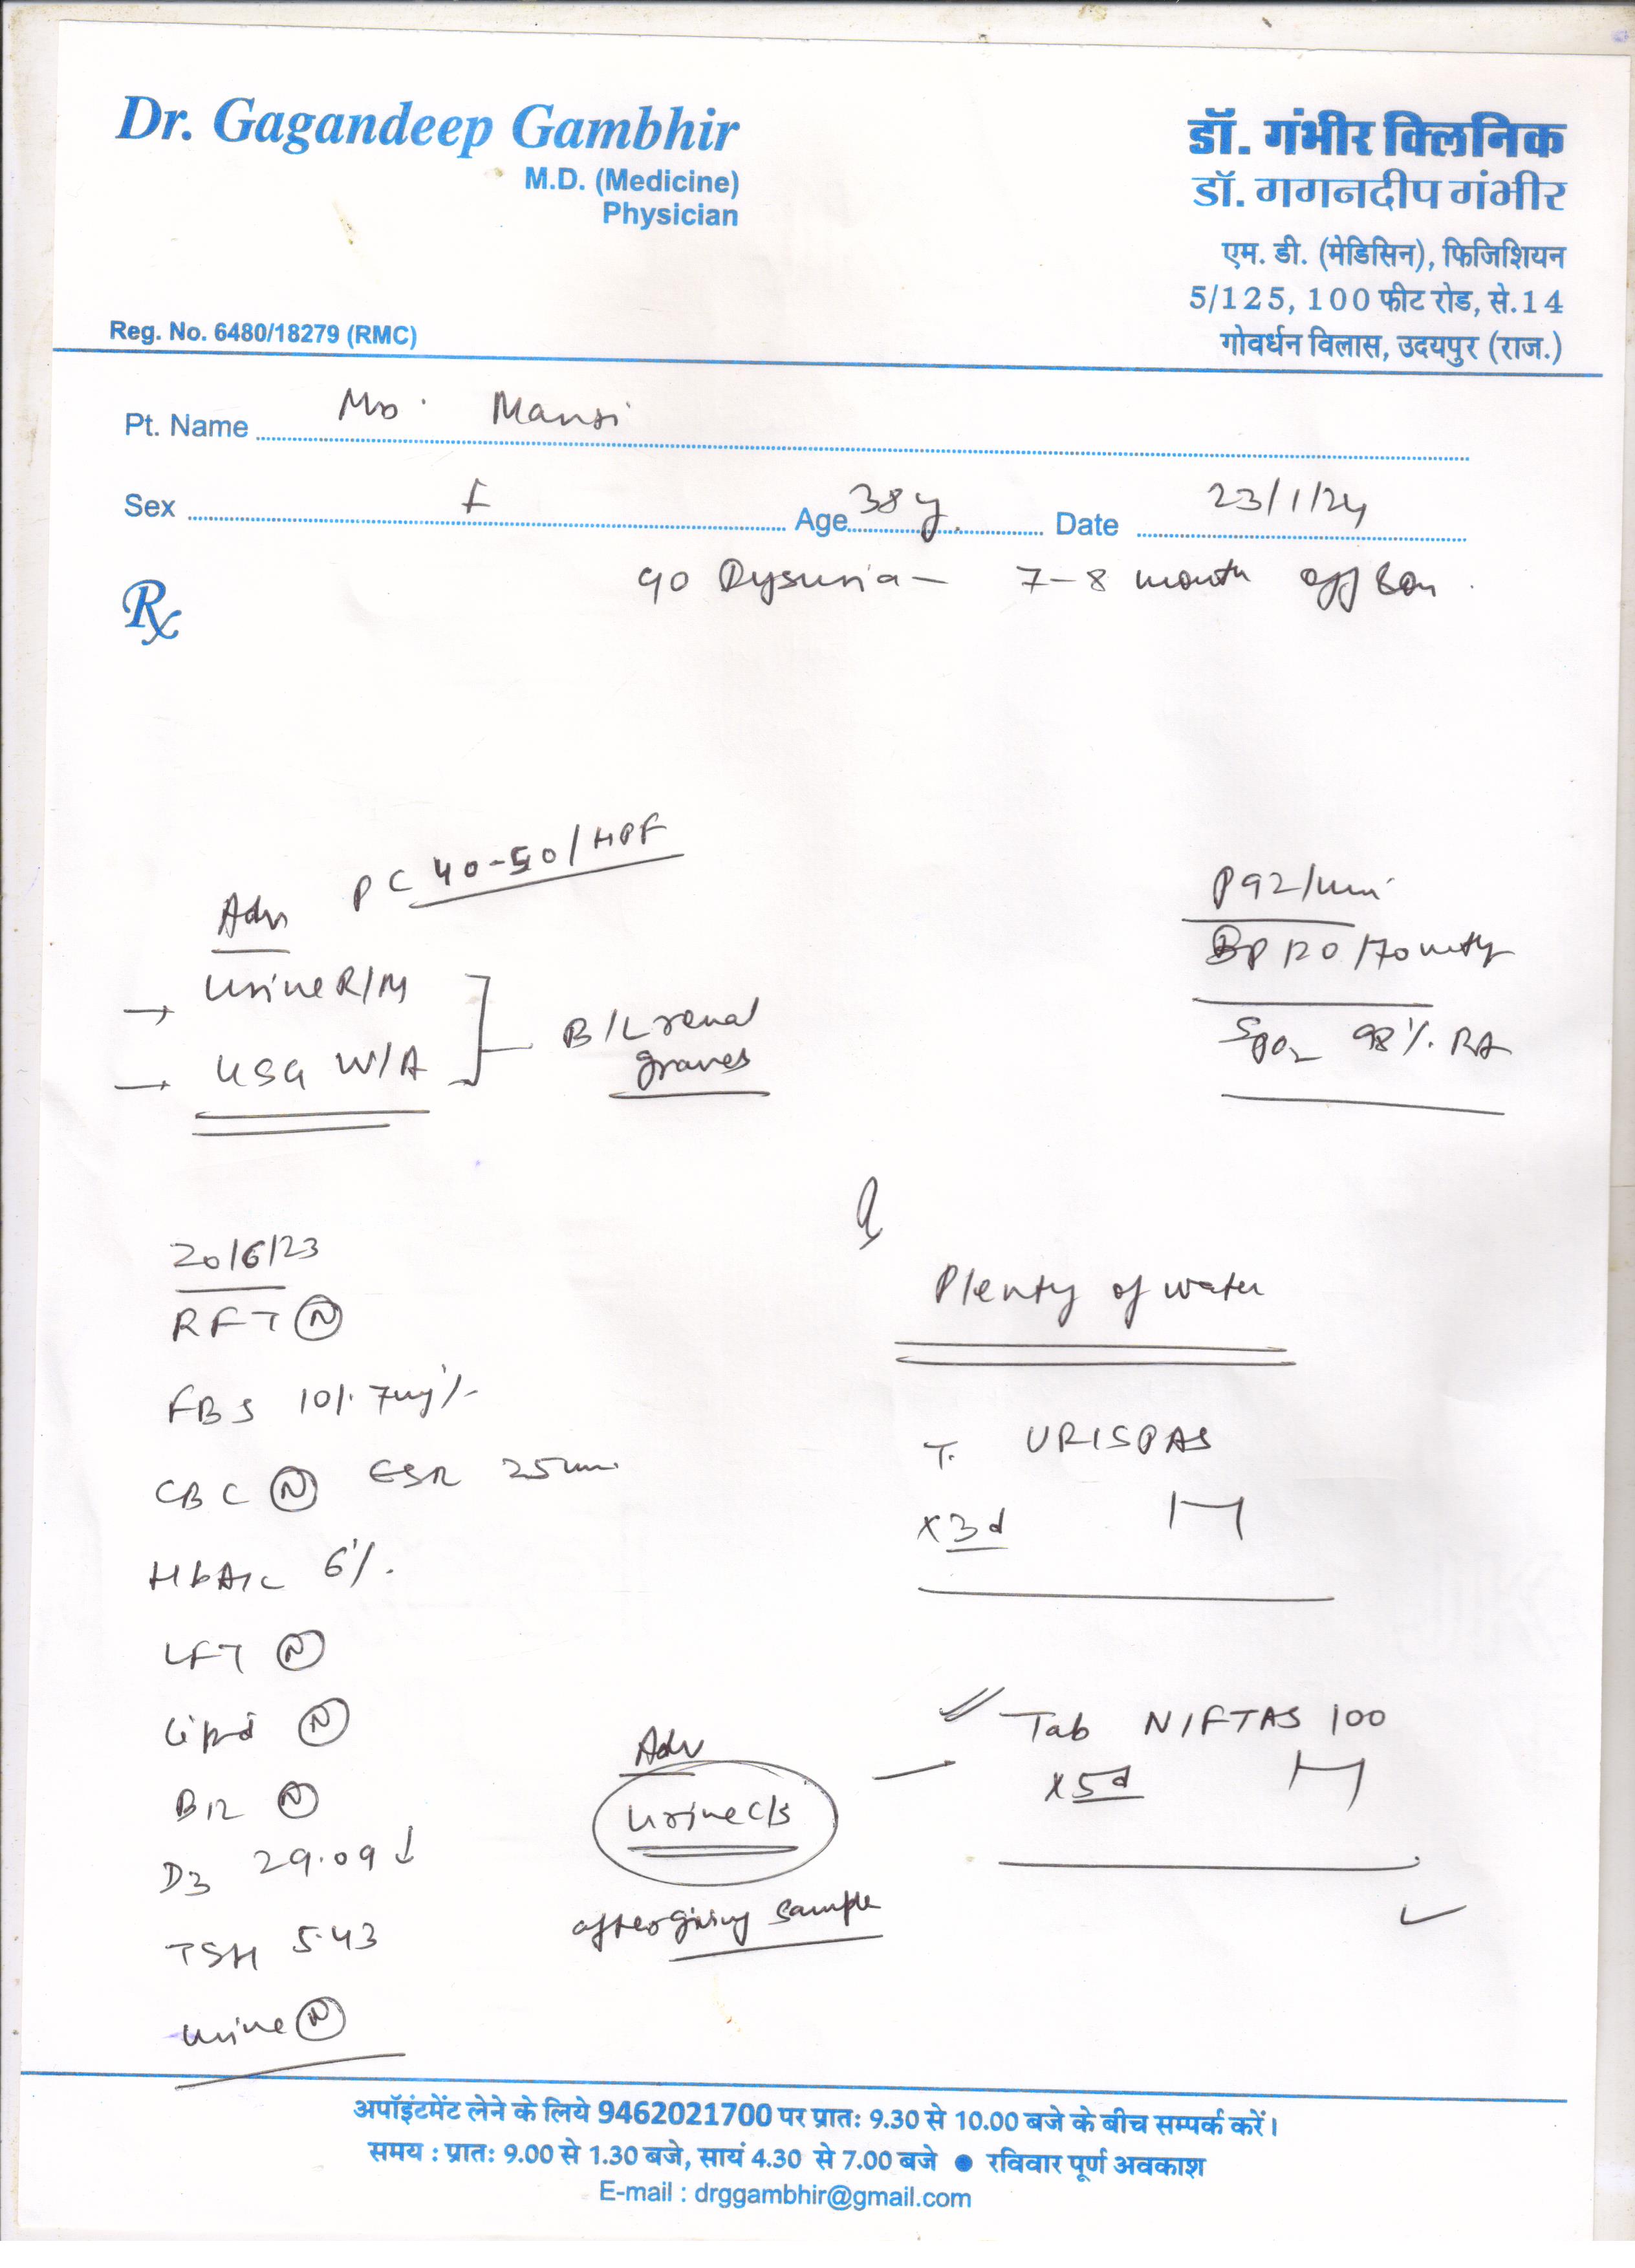 Dr. Gagandeep Gambhir
M.D. (Medicine)
Physician
Reg. No. 6480/18279 (RMC)
डॉ. गंभीर क्लिनिक
डॉ. गगनदीप गंभीर
एम. डी. (मेडिसिन), फिजिशियन
5/125, 100 फीट रोड, से.14
गोवर्धन विलास, उदयपुर (राज.)
Pt. Name Mansi
Sex f Age 38y. Date 23/1/24
Rx
Dysuria - 7-8 month off & on
PC 40-50/HPF
Adv
Urine R/M
USG W/A
B/L renal
P 92/min
BP 120/70 mmHg
SpO2 98% RA
Plenty of water
T. URISPAS
x3d
20/6/23
RFT N
FBS 101.7mg%
CBC N ESR 25mm
HbA1c 6%.
LFT N
Lipid N
B12 N
D3 29.09↓
TSH 5.43
Urine N
Adv
Urine C/S
after giving sample
Tab NIFTAS 100
x5d
अपॉइंटमेंट लेने के लिये 9462021700 पर प्रातः 9.30 से 10.00 बजे के बीच सम्पर्क करें।
समय : प्रातः 9.00 से 1.30 बजे, सायं 4.30 से 7.00 बजे ● रविवार पूर्ण अवकाश
E-mail : drggambhir@gmail.com